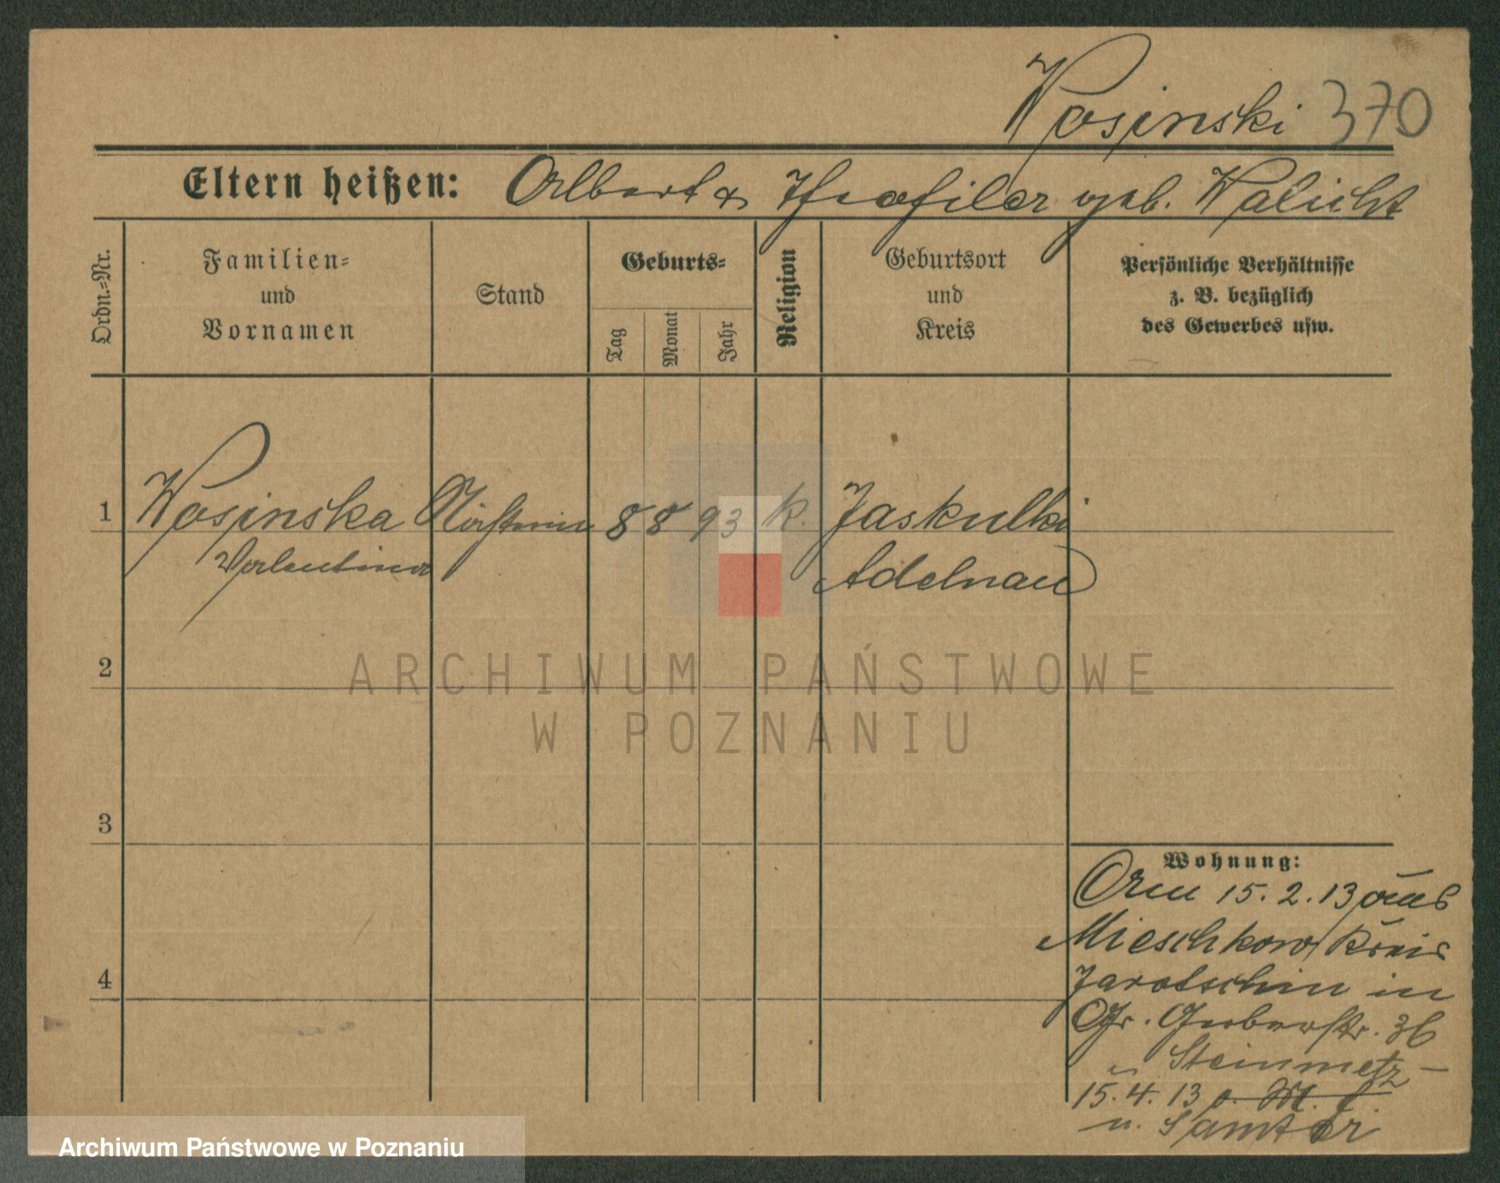 Wosinski 370
Eltern heißen: Albert & Theofila geb. Walicht
Ordn.-Nr.
Familien-
und
Vornamen
Stand
Geburts-
Tag
Monat
Jahr
Religion
Geburtsort
und
Kreis
Persönliche Verhältnisse
z. B. bezüglich
des Gewerbes usw.
1 Wosinska 8 8 93 k. Jaskulki
Valentina Adelnau
2
ARCHIWUM PAŃSTWOWE
W POZNANIU
3
Wohnung:
Am 15. 2. 13 aus
Mieschkow Kreis
Jarotschin in
Gr. Gerberstr. 36
b. Steinmetz –
15. 4. 13
n. Samter
4
Archiwum Państwowe w Poznaniu